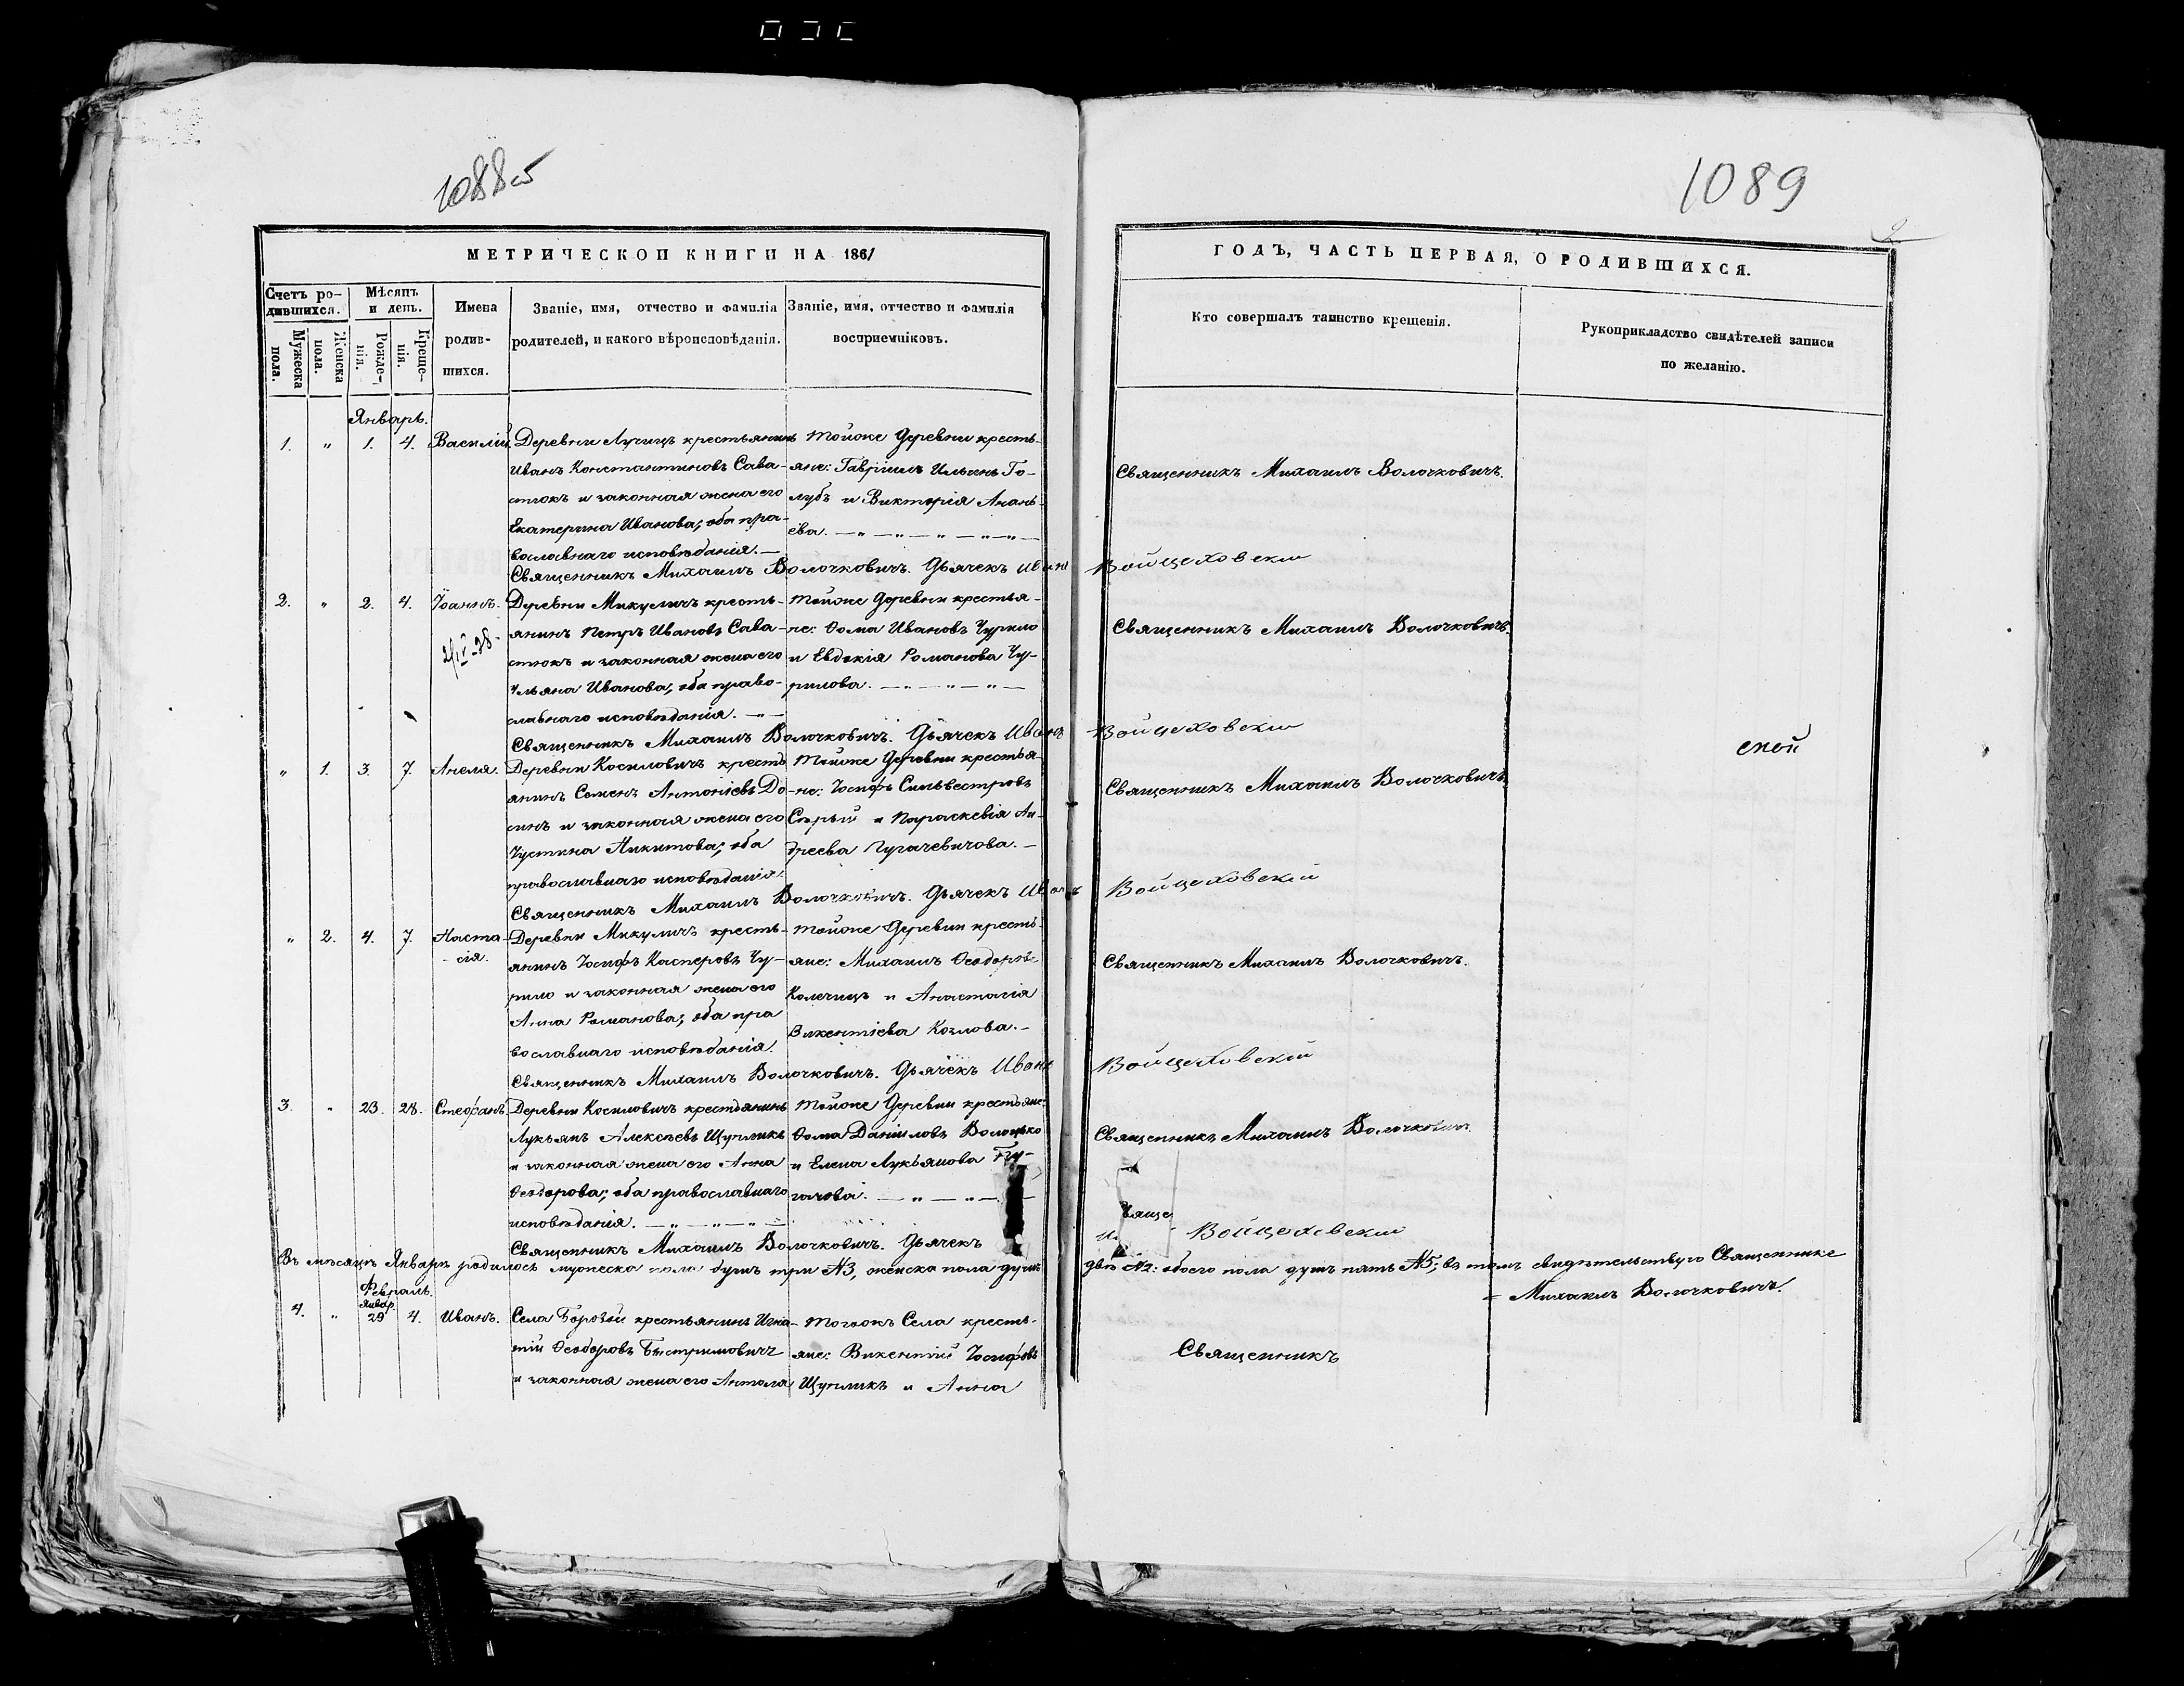 1088об
1089
2
МЕТРИЧЕСКОЙ КНИГИ НА 1861
ГОДЪ, ЧАСТЬ ПЕРВАЯ, О РОДИВШИХСЯ.
Счетъ ро-
дившихся.
Мужеска пола.
Женска пола.
Мѣсяцъ
и день.
Рожде-
нія.
Креще-
нія.
Имена
родив-
шихся.
Званіе, имя, отчество и фамилія
родителей, и какого вѣроисповѣданія.
Званіе, имя, отчество и фамилія
восприемниковъ.
Кто совершалъ таинство крещенія.
Рукоприкладство свидѣтелей записи
по желанію.
Январь.
1. " 1. 4. Василій
Деревни Лучицъ крестьянинъ
Иванъ Константиновъ Сава-
стюкъ и законная жена его
Екатерина Иванова; оба пра-
вославнаго исповѣданія. —
Тойже Деревни кресть-
яне: Гавріилъ Ильинъ Го-
лубъ и Викторія Анань-
ева. — " — " — " — " — " —
Священникъ Михаилъ Волочковичъ.
Священникъ Михаилъ Волочковичъ. Дьячекъ Иванъ Войцеховскій
2. " 2. 4. Іоаннъ.
Деревни Микуличъ кресть-
янинъ Петръ Ивановъ Сава-
стюкъ и законная жена его
Ульяна Иванова; оба право-
славнаго исповѣданія. — " —
Тойже Деревни крестья-
не: Ѳома Ивановъ Чурило
и Евдокія Романова Чу-
рилова. — " — " — " —
Священникъ Михаилъ Волочковичъ.
Священникъ Михаилъ Волочковичъ. Дьячекъ Иванъ Войцеховскій
ской
" 1. 3. 7. Анеля.
Деревни Косиловичъ кресть
янинъ Семенъ Антоніевъ До-
синъ и законная жена его
Іустина Никитова; оба
православнаго исповѣданія.
Тойже Деревни крестья-
не: Іосифъ Сильвестровъ
Сѣрый и Параскевія Ан-
дреева Пугачевичова. —
Священникъ Михаилъ Волочковичъ.
Священникъ Михаилъ Волочковичъ. Дьячекъ Иванъ Войцеховскій
" 2. 4. 7. Наста-
-сія.
Деревни Микуличъ кресть-
янинъ Іосифъ Касперовъ Чу-
рило и законная жена его
Анна Романова; оба пра
вославнаго исповѣданія.
Тойже Деревни кресть-
яне: Михаилъ Ѳеодоровъ
Колечицъ и Анастасія
Викентіева Козлова. —
Священникъ Михаилъ Волочковичъ.
Священникъ Михаилъ Волочковичъ. Дьячекъ Иванъ Войцеховскій
3. " 23. 28. Стефанъ
Деревни Косиловичъ крестьянинъ
Лукьянъ Алексѣевъ Щупликъ
и законная жена его Анна
Ѳеодорова; оба православнаго
исповѣданія. — " — " — " —
Тойже Деревни крестьяне:
Ѳома Даніиловъ Волочко
и Елена Лукьянова
Священникъ Михаилъ Волочковичъ
Священникъ Михаилъ Волочковичъ. Дьячекъ Войцеховскій
Въ мѣсяцѣ Январѣ родилось мужеска пола душъ три №3, женска пола душъ двѣ №2: обоего пола душъ пять №5; въ томъ свидѣтельствую Священнике
= Михаилъ Волочковичъ.
Февраль.
4. " Январ. 29 4. Иванъ.
Села Боровой крестьянинъ Игна-
тій Ѳеодоровъ Быстримовичъ
и законная жена его Антола
Тогожъ Села кресть-
яне: Викентій Іосифовъ
Щупликъ и Анна
Священникъ